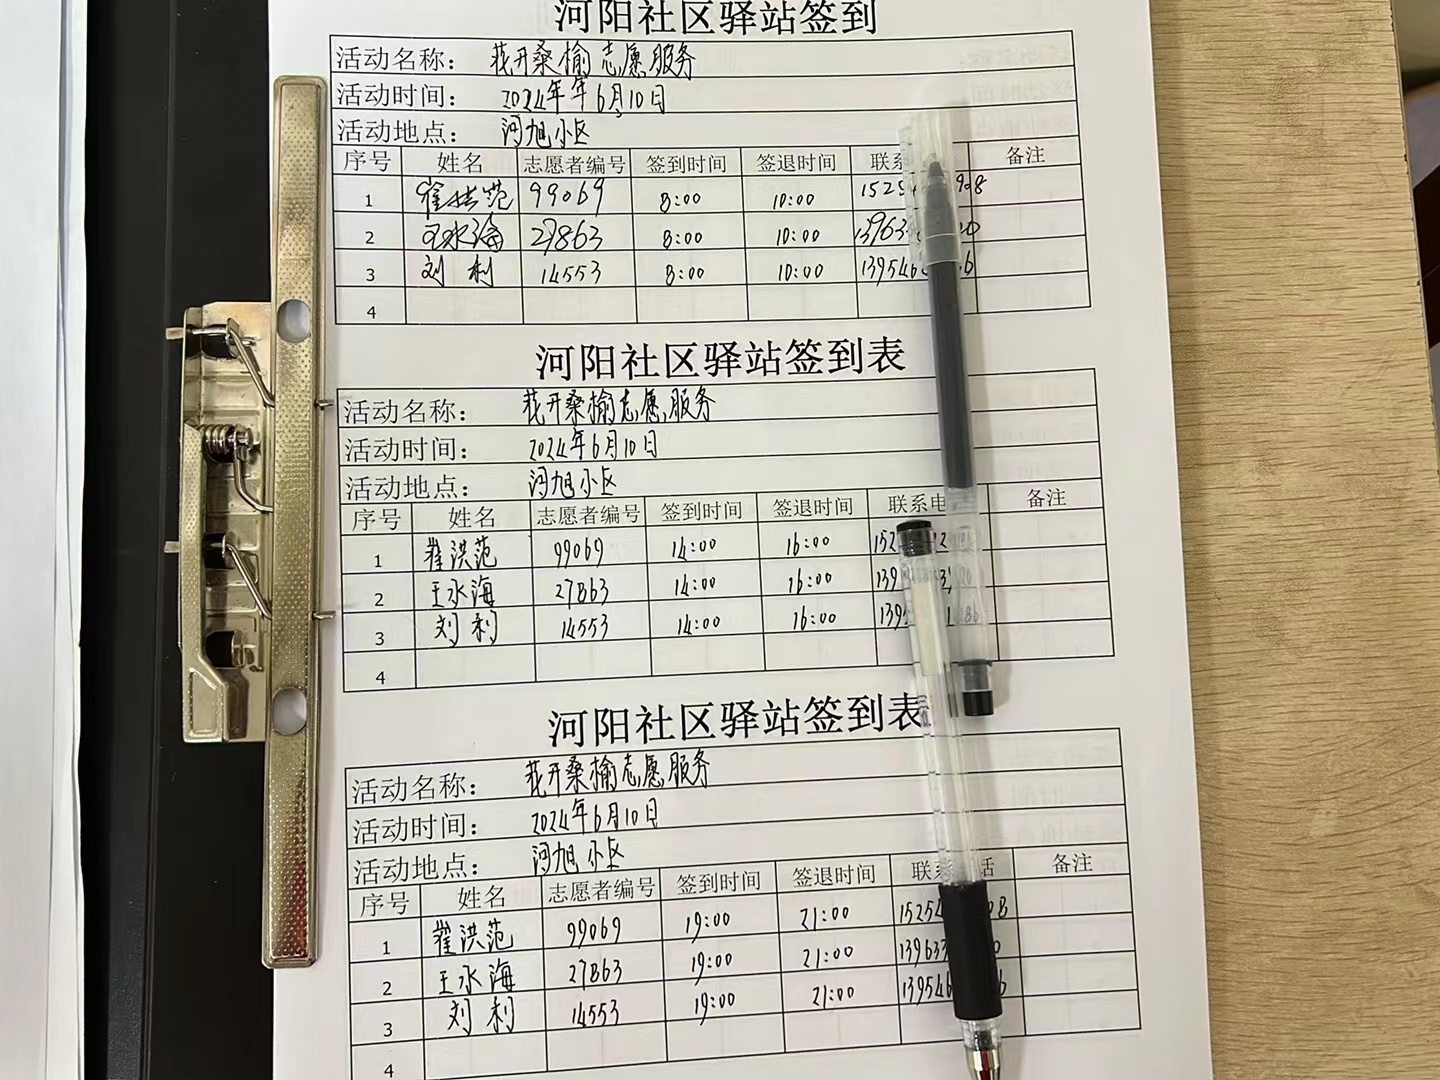 河阳社区驿站签到
活动名称： 花开桑榆志愿服务
活动时间： 2024年年6月10日
活动地点： 河旭小区
序号 姓名 志愿者编号 签到时间 签退时间 联 备注
1 崔洪范 99069 8:00 10:00 1525 908
2 王水海 27863 8:00 10:00 13963 20
3 刘利 14553 8:00 10:00 139546 6
4
河阳社区驿站签到表
活动名称： 花开桑榆志愿服务
活动时间： 2024年6月10日
活动地点： 河旭小区
序号 姓名 志愿者编号 签到时间 签退时间 联系电 备注
1 崔洪范 99069 14:00 16:00 152
2 王水海 27863 14:00 16:00 139
3 刘利 14553 14:00 16:00 139
4
河阳社区驿站签到表
活动名称： 花开桑榆志愿服务
活动时间： 2024年6月10日
活动地点： 河旭小区
序号 姓名 志愿者编号 签到时间 签退时间 联系 话 备注
1 崔洪范 99069 19:00 21:00 1525
2 王水海 27863 19:00 21:00 13963 0
3 刘利 14553 19:00 21:00 13954 6
4